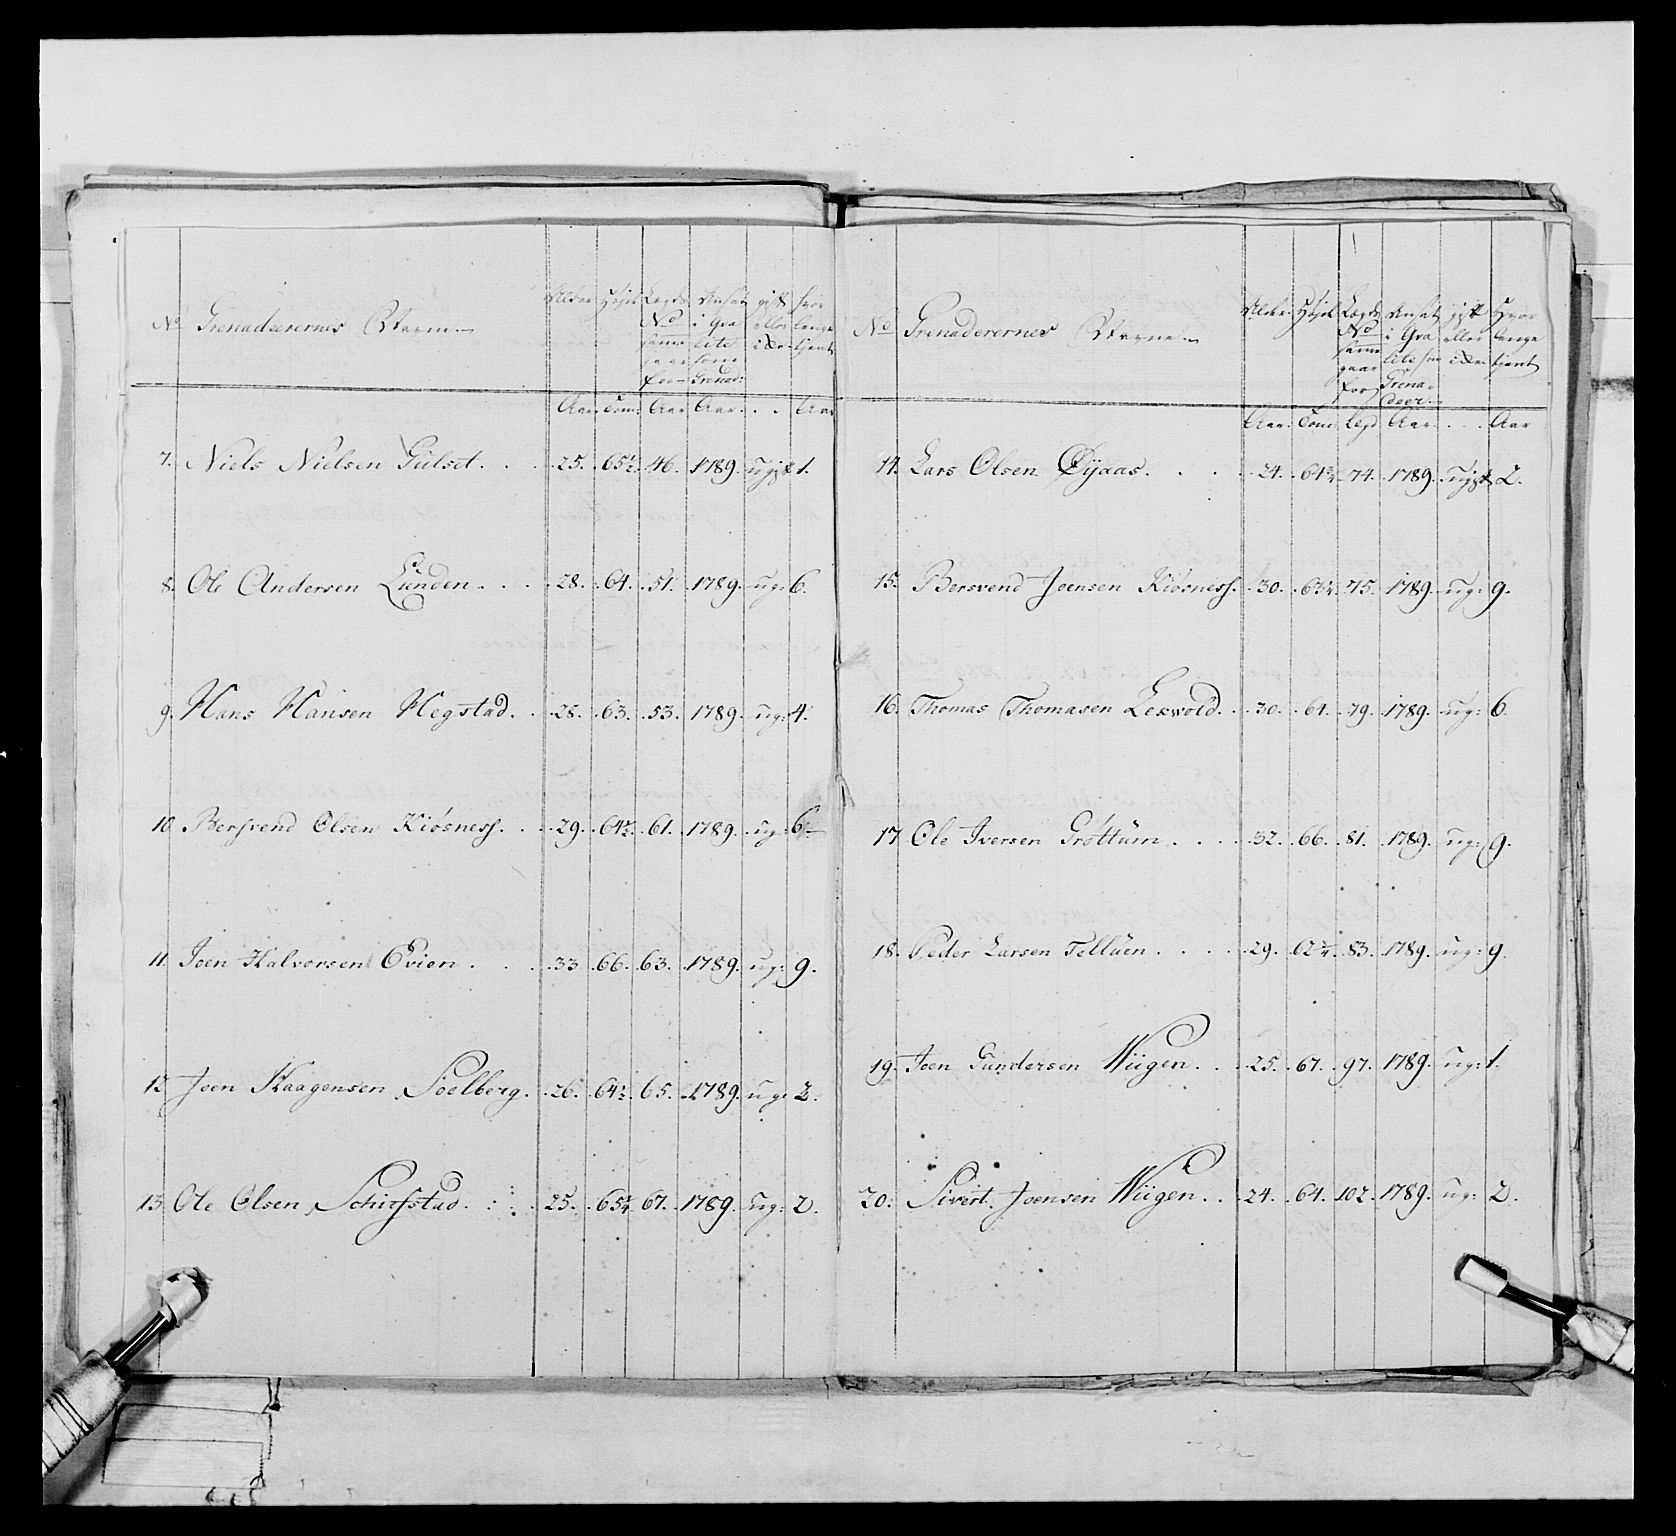 No Grenaderernes Navne Alder Højde Lægds No samme gaar for Ansat i Qvalite som Grenad: gift eller ei hvor lenge tjent
Aar. Tom: Aar. Aar. . . Aar
7. Niels Nielsen Gulset. . . 25. 65½. 46. 1789. ugift 1.
8. Ole Andersen Lunden. . . 28. 64. 51. 1789. ug: 6.
9. Hans Hansen Hegstad. . 28. 63. 53. 1789. ug: 4.
10. Bersvend Olsen Kiösness. . . 29. 64½. 61. 1789. ug: 6.
11. Joen Halvorsen Evien. . . . 33. 66. 63. 1789. ug: 9.
12. Joen Haagensen Soelberg. . 26. 64½. 65. 1789. ug: 2.
13. Ole Olsen Schiefstad. . . 25. 65¼. 67. 1789. ug: 2.
No Grenaderernes Navne Alder. Højde Lægds No samme gaar for Ansat i Qvalite som Grenadeer. gift eller ei Hvor lenge tjent
Aar. Tom: Legd Aar. . . Aar
14. Lars Olsen Øÿaas. . . . 24. 64¾. 74. 1789. ugift 2.
15. Bersvend Joensen Kiösness. 30. 63¼. 75. 1789. ug: 9.
16. Thomas Thomasen Lexvold. . 30. 64. 79. 1789. ug: 6.
17. Ole Iversen Gröttum. . . . 32. 66. 81. 1789. ug: 9.
18. Peder Larsen Telluen. . . . 29. 62¾. 83. 1789. ug: 9.
19. Joen Gundersen Wiigen. . . 25. 67. 97. 1789. ug: 1.
20. Sivert Joensen Wiigen. . 24. 64. 102. 1789. ug: 2.